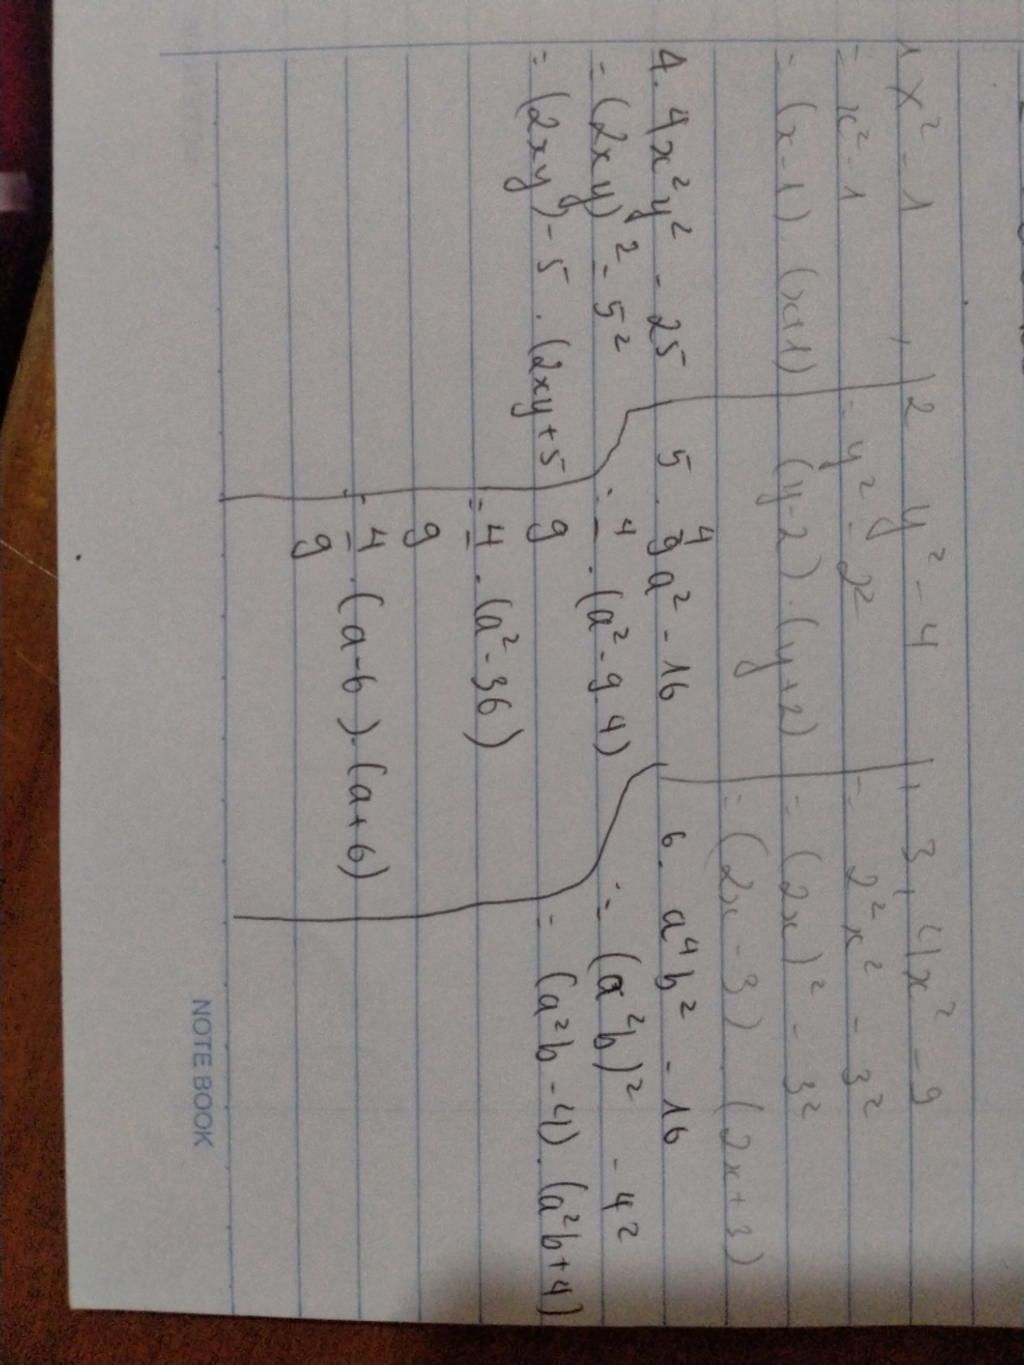 1 x² - 1
= x² - 1
= (x-1).(x+1)
2 y² - 4
= y² - 2²
(y-2).(y+2)
3, 4x² - 9
= 2²x² - 3²
= (2x)² - 3²
= (2x - 3).(2x+3)
4. 4x²y² - 25
= (2xy)² - 5²
= (2xy) - 5 . (2xy+5
5. 4/9 a² - 16
= 4/9 . (a² - 9.4)
= 4/9 . (a² - 36)
= 4/9 . (a-6).(a+6)
6. a⁴b² - 16
= (a²b)² - 4²
= (a²b - 4).(a²b+4)
NOTE BOOK